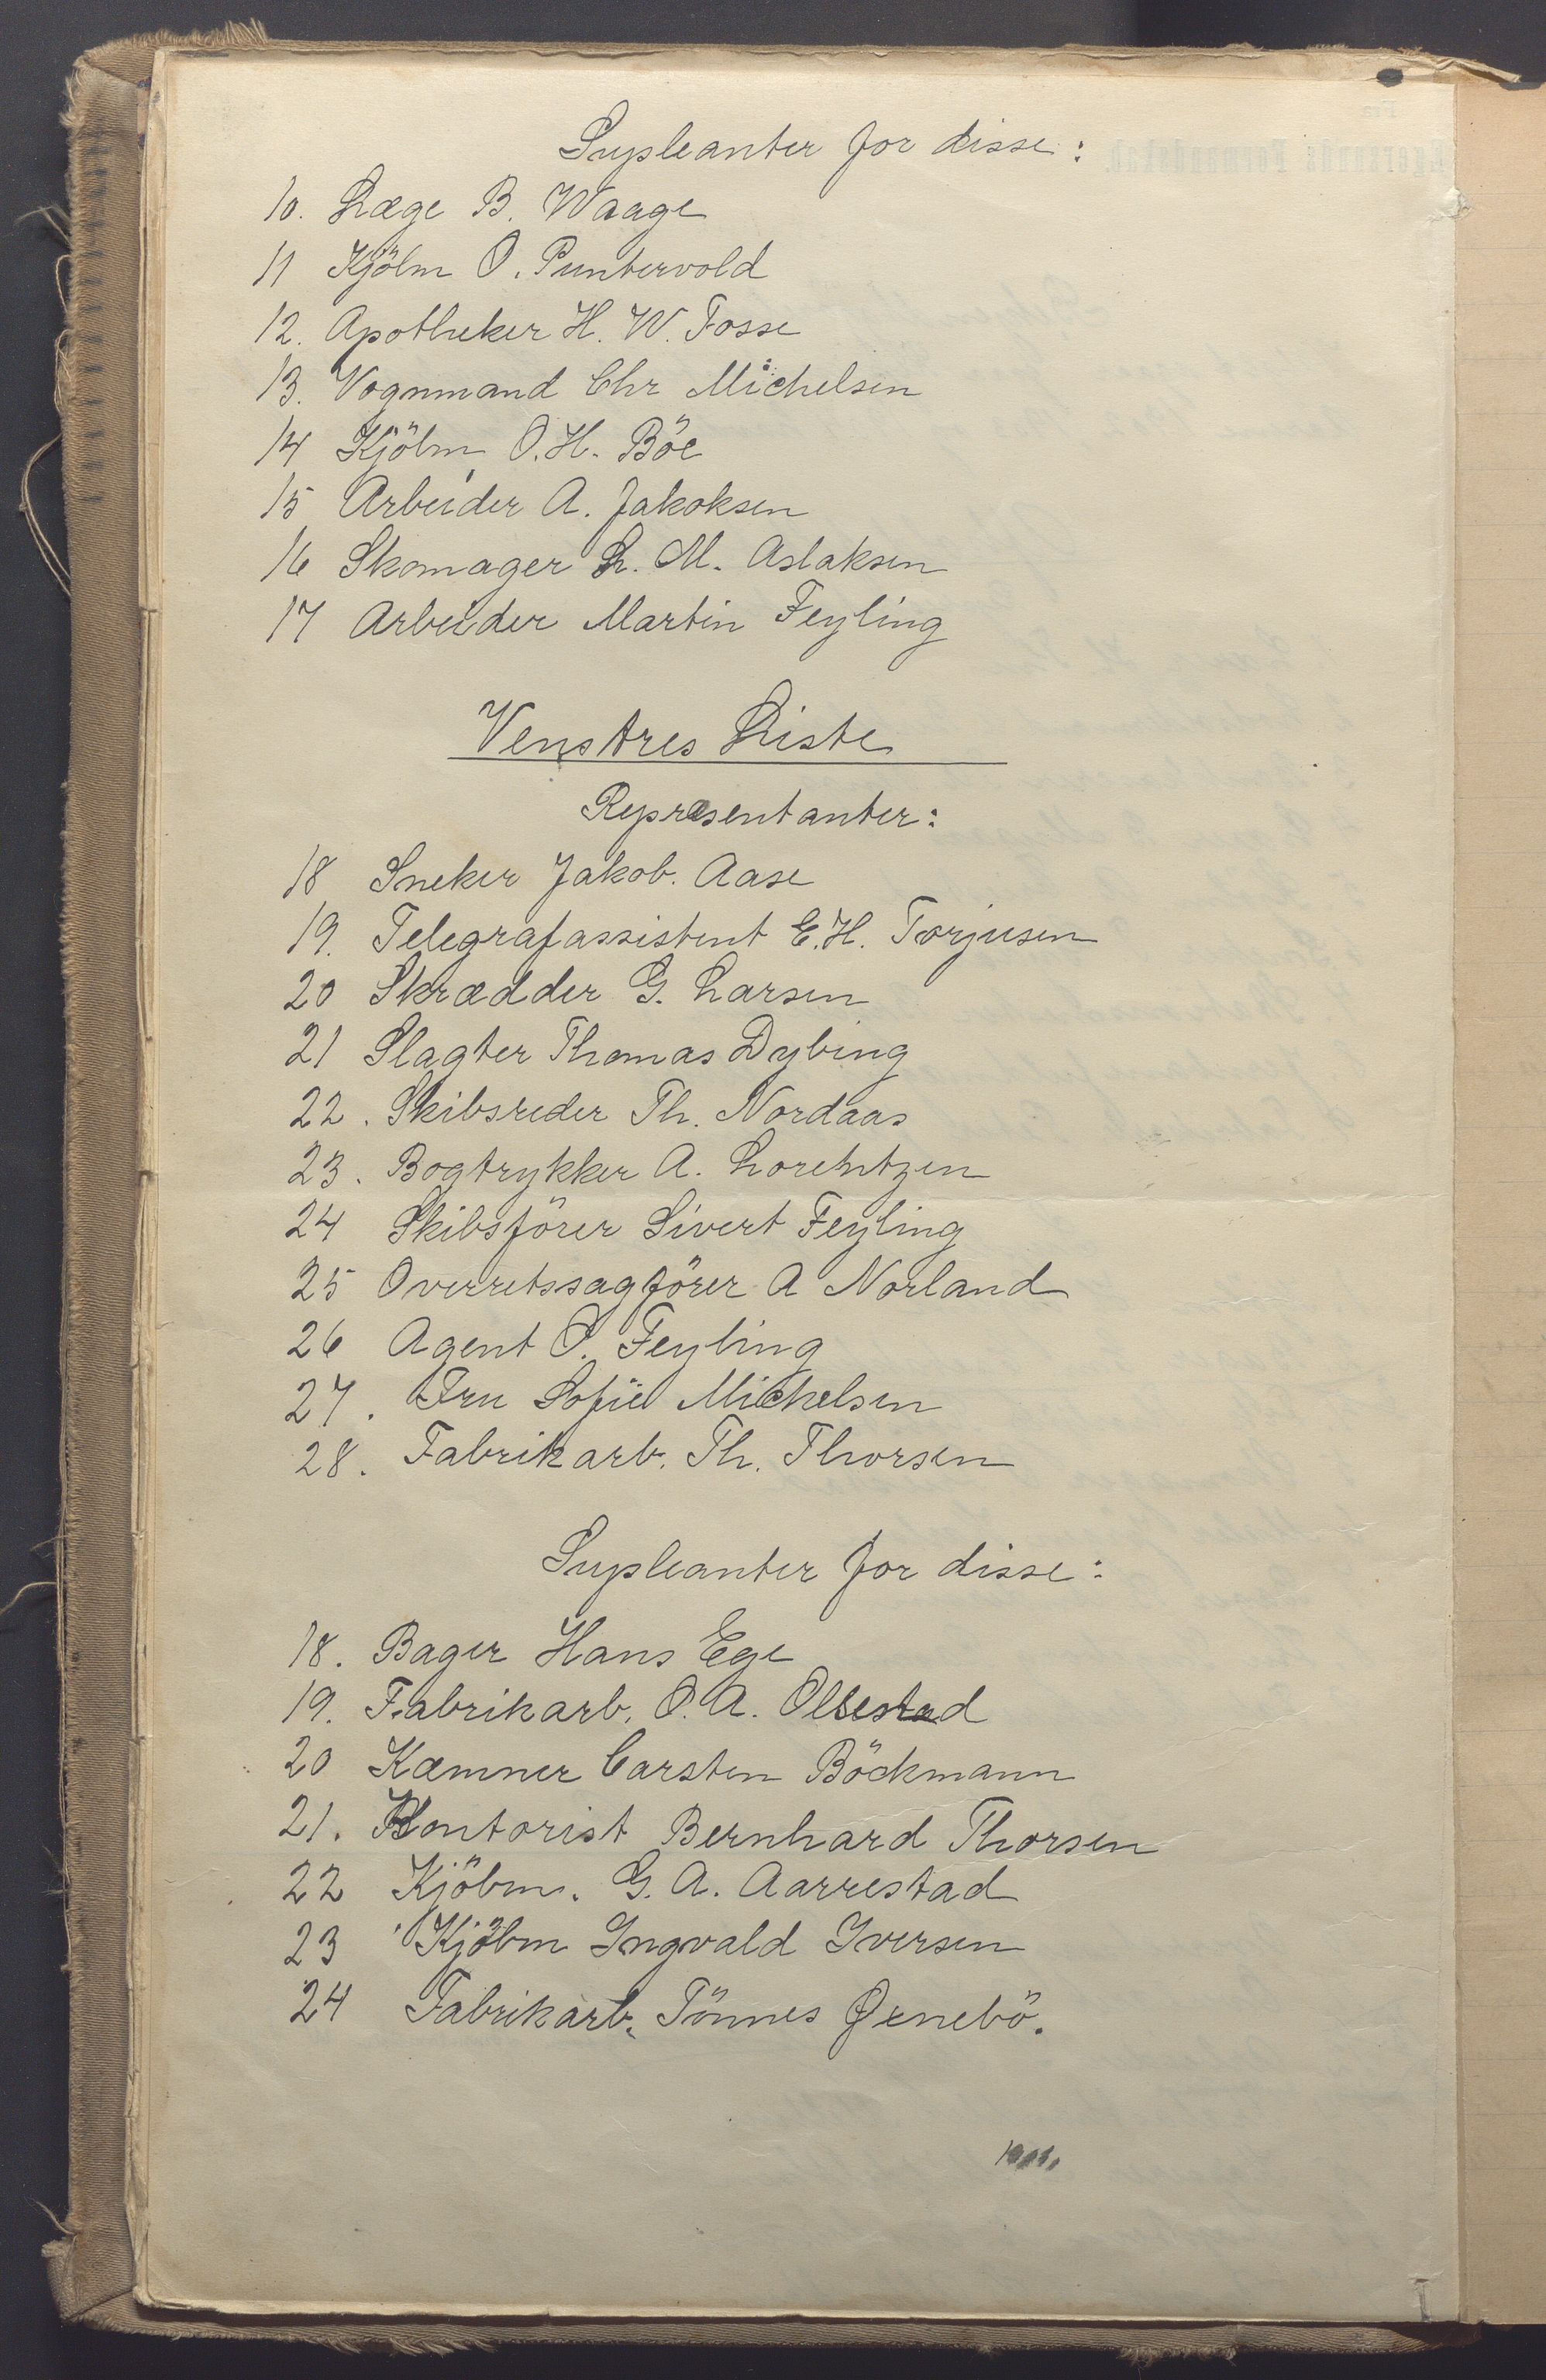 Supleanter for disse:
10. Læge B. Waage
11 Kjöbm O. Puntervold
12. Apotheker H. W. Fosse
13. Vognmand Chr Michelsen
14 Kjöbm O. H. Böe
15 Arbeider A. Jakoksen
16 Skomager L. M. Aslaksen
17 Arbeider Martin Feyling
Venstres Liste
Repræsentanter:
18 Sneker Jakob. Aase
19. Telegrafassistent E. H. Torjusen
20 Skrædder G. Larsen
21 Slagter Thomas Dybing
22. Skibsreder Th. Nordaas
23. Bogtrykker A. Lorentzen
24 Skibsförer Sivert Feyling
25 Overretssagförer A Norland
26 Agent O. Feyling
27. Fru Sofie Michelsen
28. Fabrikarb. Th. Thorsen
Supleanter for disse:
18. Bager Hans Ege
19. Fabrikarb. O. A. Ollestad
20 Kæmner Carsten Böckmann
21. Kontorist Bernhard Thorsen
22 Kjöbm. G. A. Aarrestad
23 Kjöbm Ingvald Iversen
24 Fabrikarb. Tönnes Ørnebö.